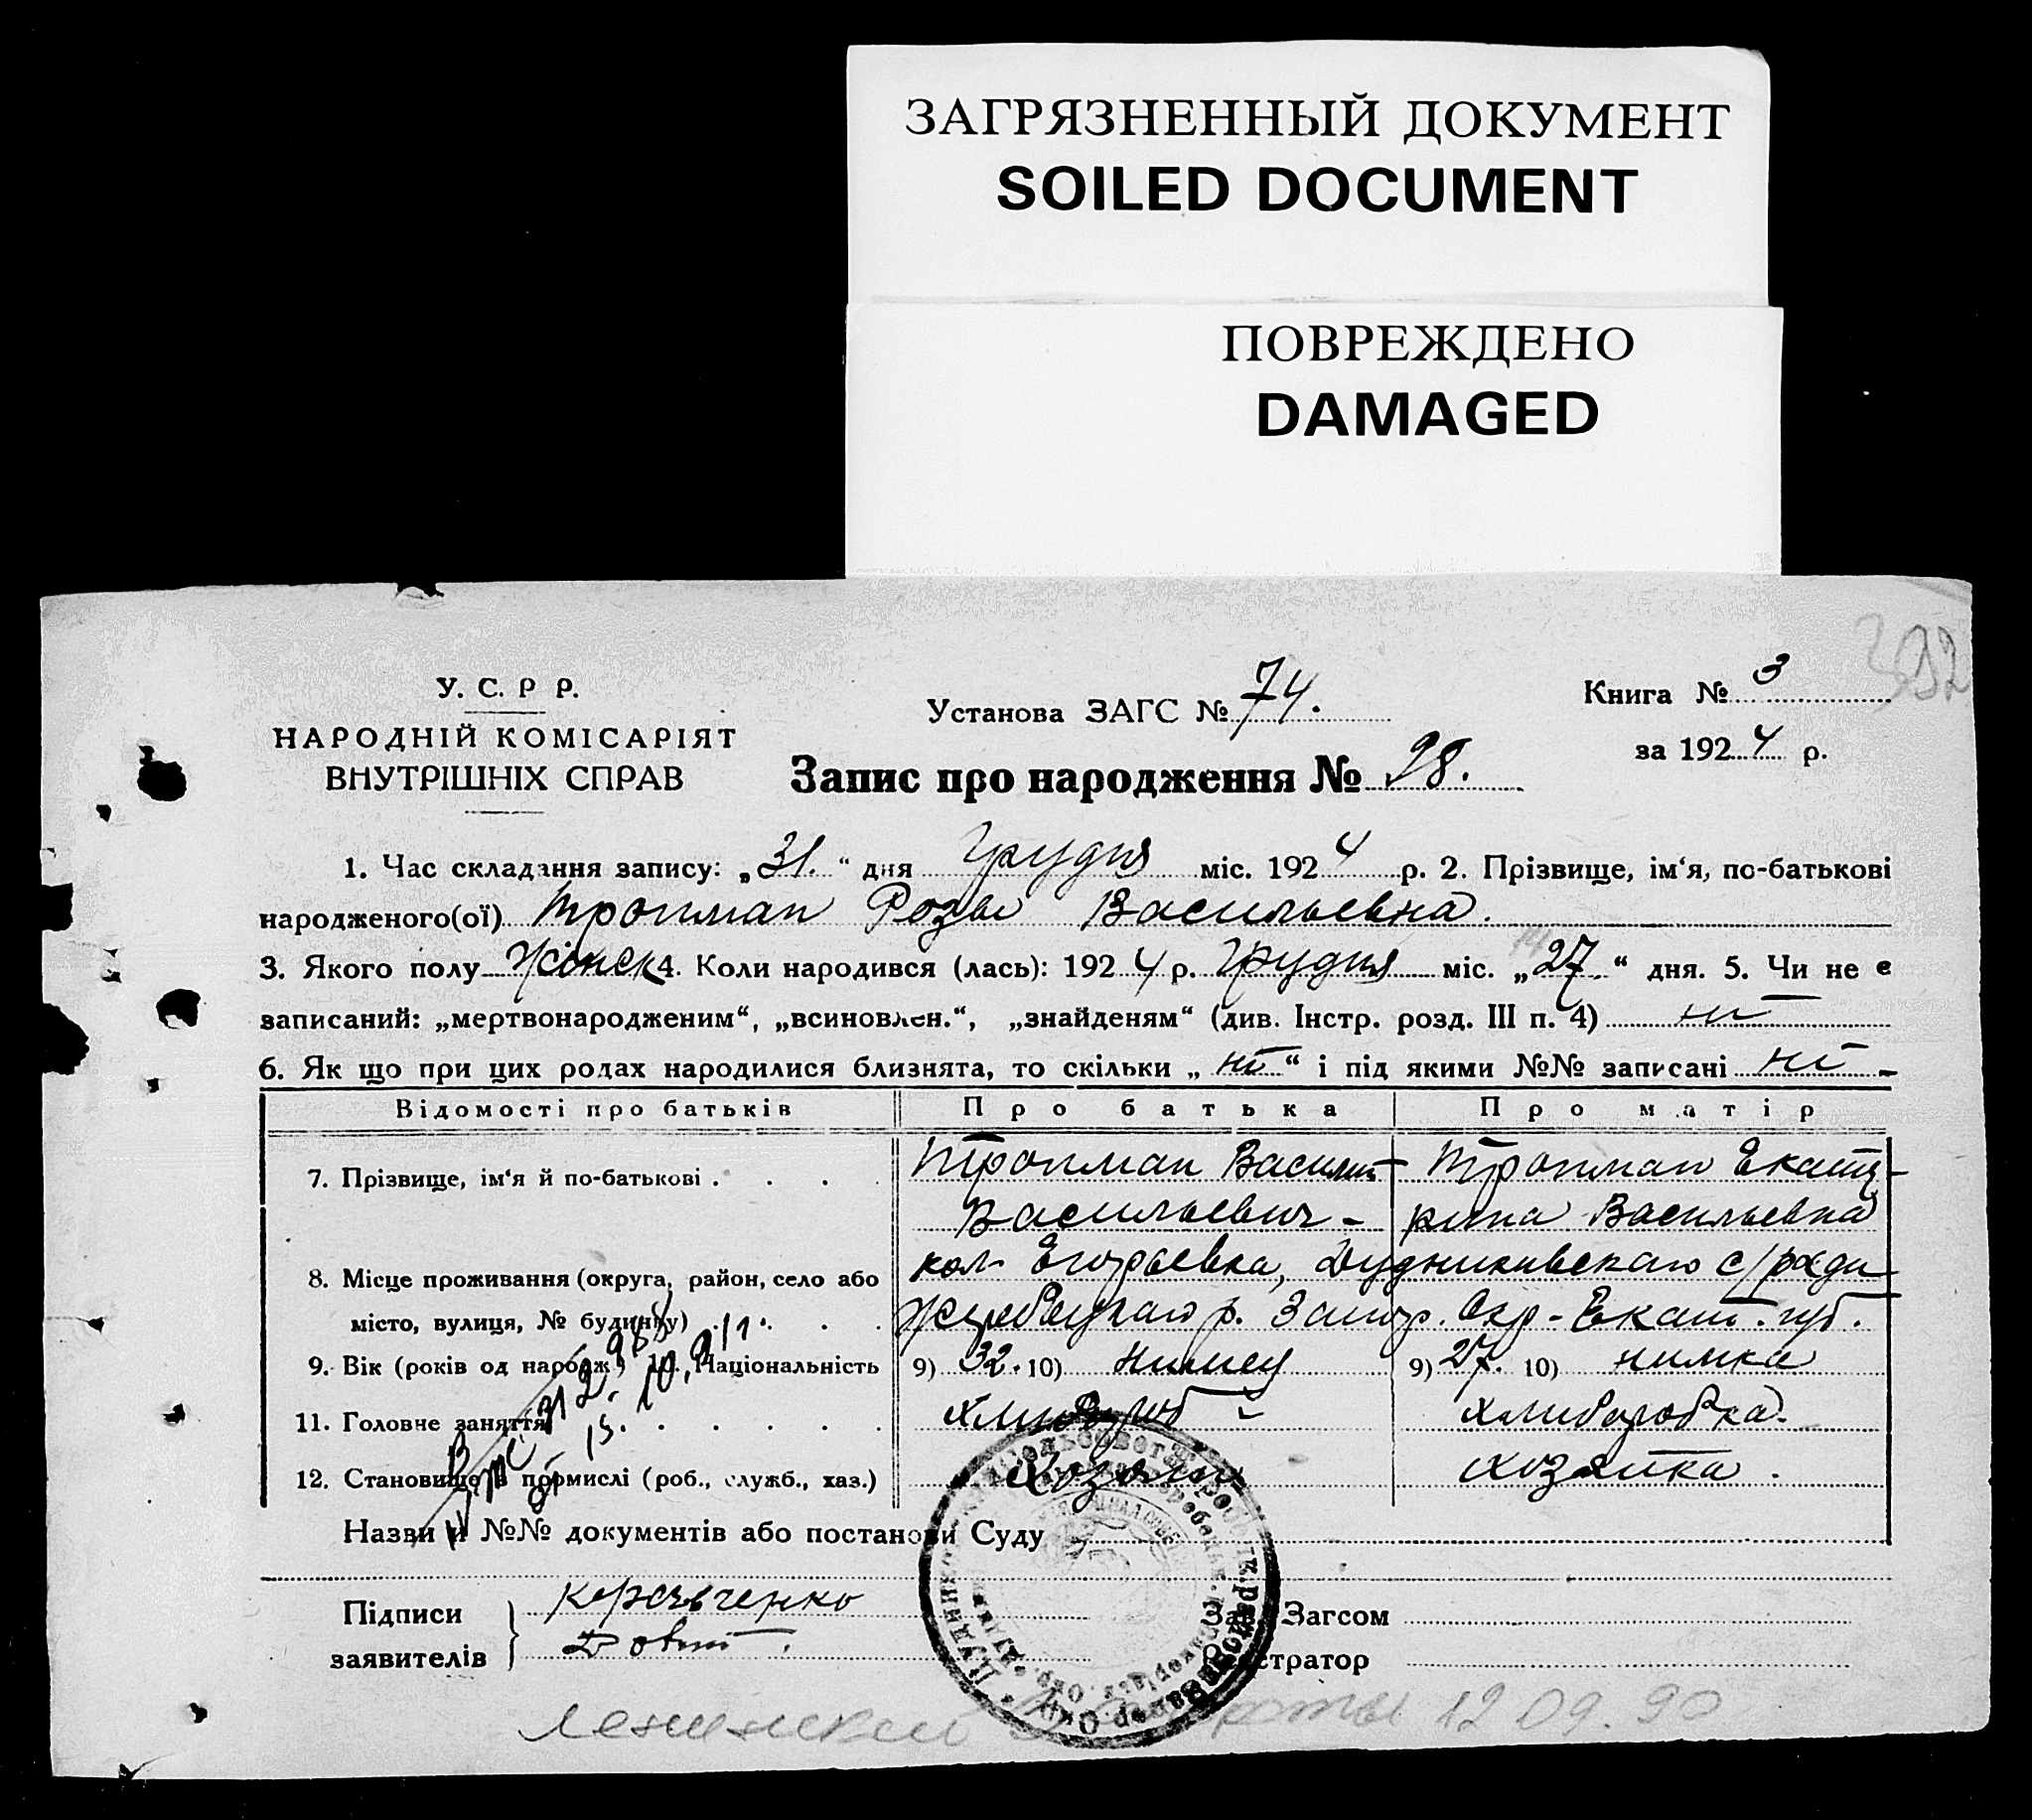 ЗАГРЯЗНЕННЫЙ ДОКУМЕНТ
SOILED DOCUMENT
ПОВРЕЖДЕНО
DAMAGED
392
У. С. Р Р.
НАРОДНІЙ КОМІСАРІЯТ
ВНУТРІШНІХ СПРАВ
Установа ЗАГС № 74.
Книга № 3
за 1924 р.
Запис про народження № 28.
1. Час складання запису: „31.“ дня Грудня міс. 1924 р. 2. Прізвище, ім‘я, по-батькові
народженого(ої) Тропман Роза Васильевна.
3. Якого полу Жіноск 4. Коли народився (лась): 1924 р. Грудня міс. „27.“ дня. 5. Чи не є
записаний: „мертвонародженим“, „всиновлен.“, „знайденям“ (див. Інстр. розд. III п. 4) ни
6. Як що при цих родах народилися близнята, то скільки „ни“ і під якими №№ записані ни -
Відомості про батьків Про батька Про матір
7. Прізвище, ім‘я й по-батькові . . . . Тропман Василий Васильевич - Тропман Екатерина Васильевна
8. Місце проживання (округа, район, село або
місто, вулиця, № будинку) . . . .
кол. Егорьевка, Дудникивскаго с/ради
Жеребецкаго р. Запор. Окр - Екат. губ.
9. Вік (років од народж.) 10. Національність 9) 32. 10) нимец 9) 27. 10) нимка
11. Головне заняття . . . . . . хлибороб хлиборобка.
12. Становище в промислі (роб., служб., хаз.) Хозяин хозяйка.
Назви й №№ документів або постанови Суду
Підписи
заявителів
Кравченко
Зав. Загсом
Реєстратор
12 09. 90